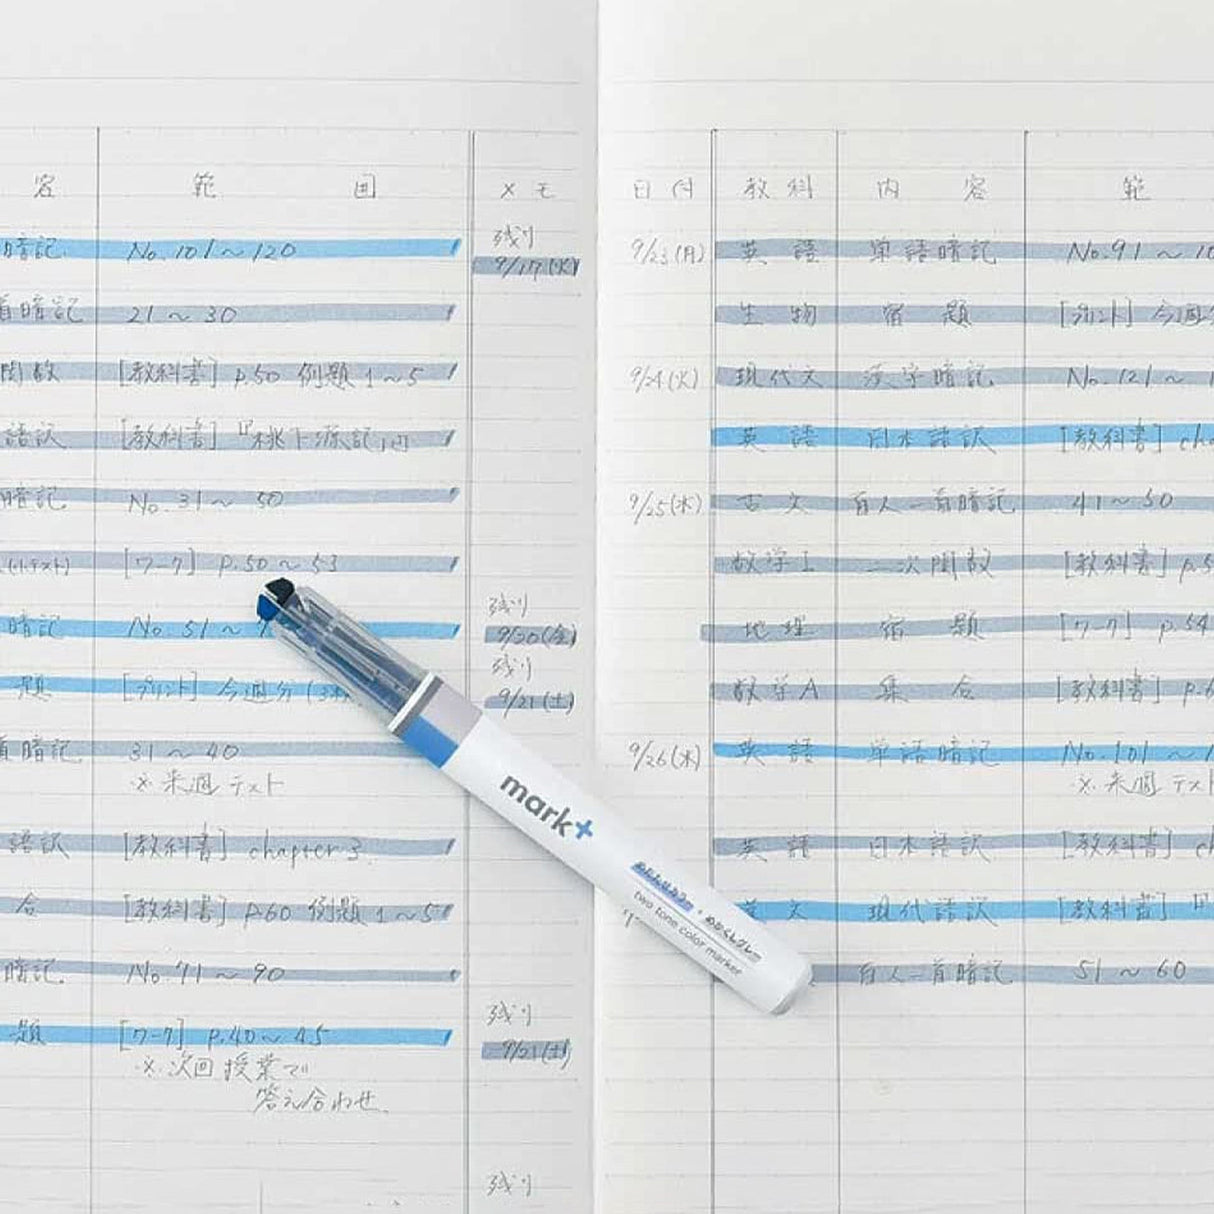 容 範 囲 メモ
暗記 No.101～120 残り
9/17(火)
首暗記 21～30
関数 [教科書] p.50 例題1～5
語訳 [教科書]『桃下源記』
暗記 No.31～50
(小テスト) [ワーク] p.50～53
暗記 No.51～7 残り
9/20(金)
題 [プリント] 今週分 残り
9/21(土)
首暗記 31～40
※来週テスト
語訳 [教科書] chapter 3
合 [教科書] p.60 例題1～5
暗記 No.71～90
題 [ワーク] p.40～45 残り
9/21(土)
※次回授業で
答え合わせ
残り
日付 教科 内容 範
9/23(月) 英語 単語暗記 No.91～10
生物 宿題 [プリント] 今週分
9/24(火) 現代文 漢字暗記 No.121～1
英語 日本語訳 [教科書] cha
9/25(水) 古文 百人一首暗記 41～50
数学I 二次関数 [教科書] p.5
地理 宿題 [ワーク] p.54
数学A 集合 [教科書] p.6
9/26(木) 英語 単語暗記 No.101～1
※来週テスト
英語 日本語訳 [教科書] ch
文 現代語訳 [教科書]『
百人一首暗記 51～60
mark+
two tone color marker